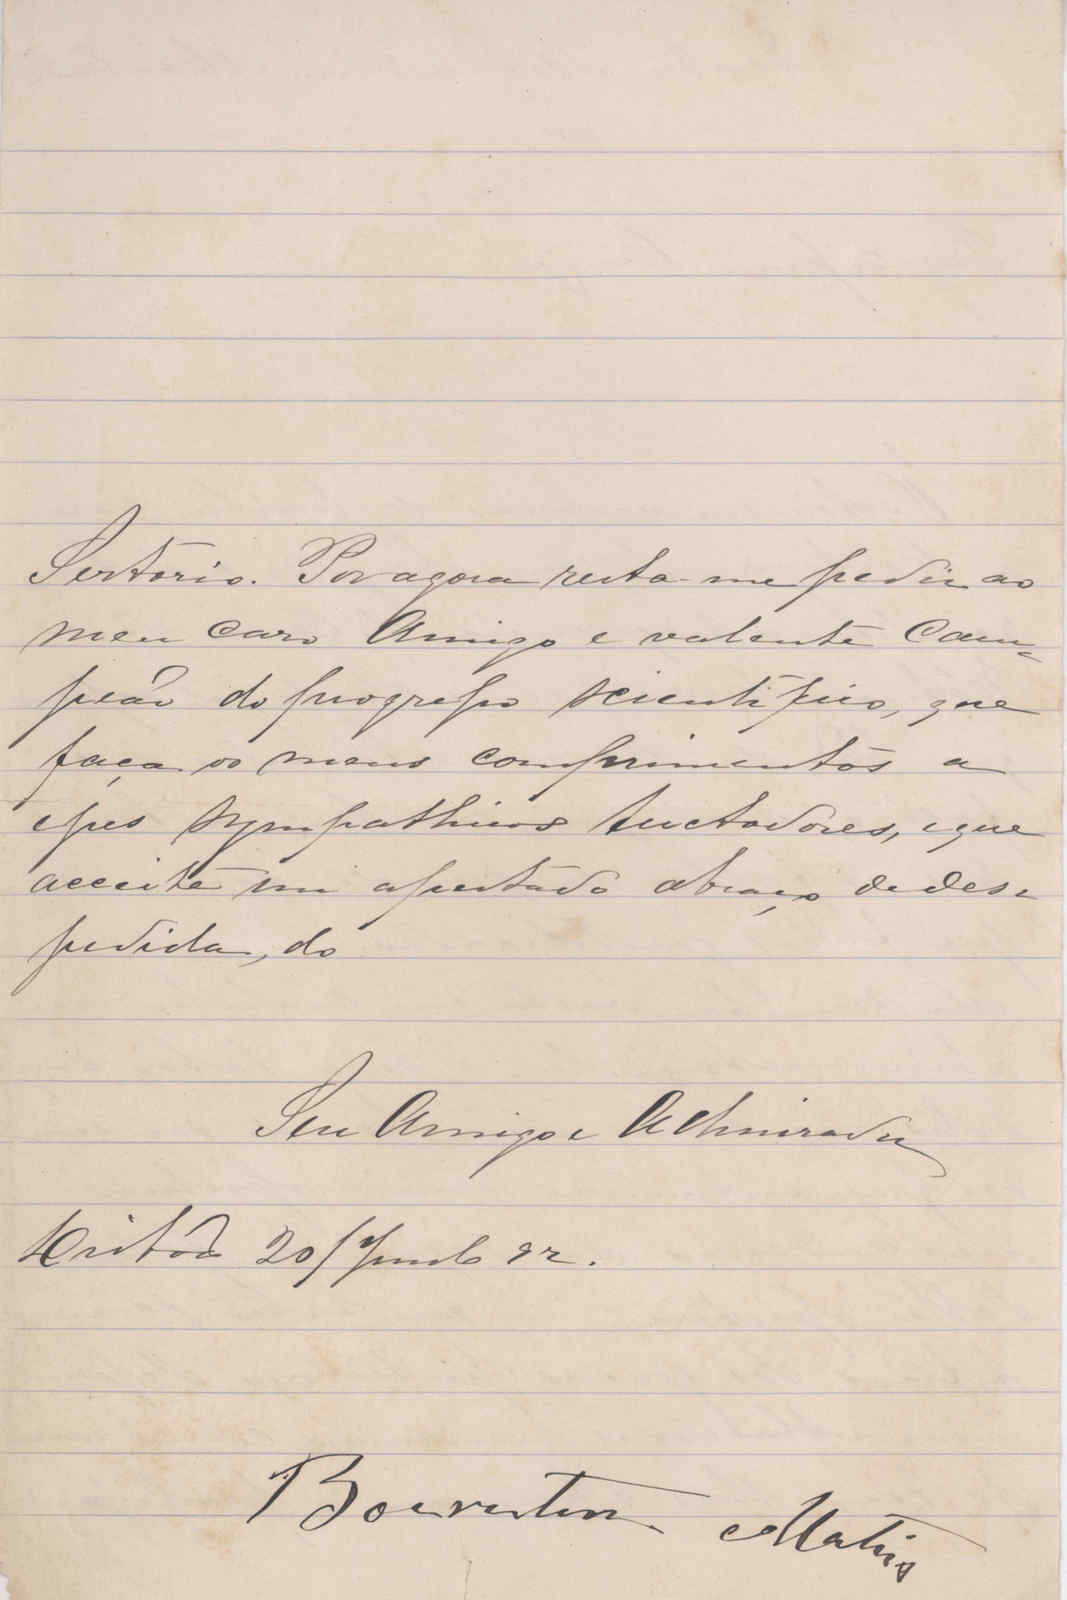 Sertorio. Por agora resta-me pedir ao
meu caro Amigo e valente Cam-
peão do progresso scientifico, que
faça os meus comprimentos a
esses sympathicos luctadores, e que
acceite um apertado abraço de des-
pedida, do
Seu Amigo e Admirador
20/Junho 92.
Boaventura Mattos